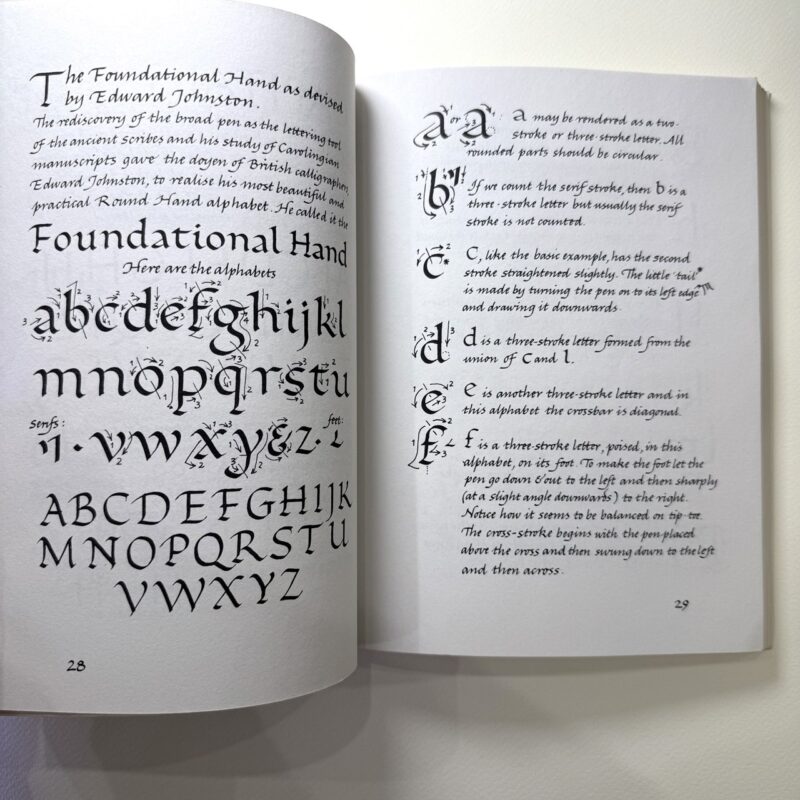 The Foundational Hand as devised
by Edward Johnston.
The rediscovery of the broad pen as the lettering tool
of the ancient scribes and his study of Carolingian
manuscripts gave the doyen of British calligraphers,
Edward Johnston, to realise his most beautiful and
practical Round Hand alphabet. He called it the
Foundational Hand
Here are the alphabets
abcdefghijkl
mnopqrstu
serifs: feet:
· vwxyz& z ·
ABCDEFGHIJK
MNOPQRSTU
VWXYZ
28
a or a : a may be rendered as a two-
stroke or three-stroke letter. All
rounded parts should be circular.
b If we count the serif stroke, then b is a
three-stroke letter but usually the serif
stroke is not counted.
c* C, like the basic example, has the second
stroke straightened slightly. The little 'tail'*
is made by turning the pen on to its left edge
and drawing it downwards.
d d is a three-stroke letter formed from the
union of C and l.
e e is another three-stroke letter and in
this alphabet the crossbar is diagonal.
f f is a three-stroke letter, poised, in this
alphabet, on its foot. To make the foot let the
pen go down & out to the left and then sharply
(at a slight angle downwards) to the right.
Notice how it seems to be balanced on tip-toe.
The cross-stroke begins with the pen placed
above the cross and then swung down to the left
and then across.
29